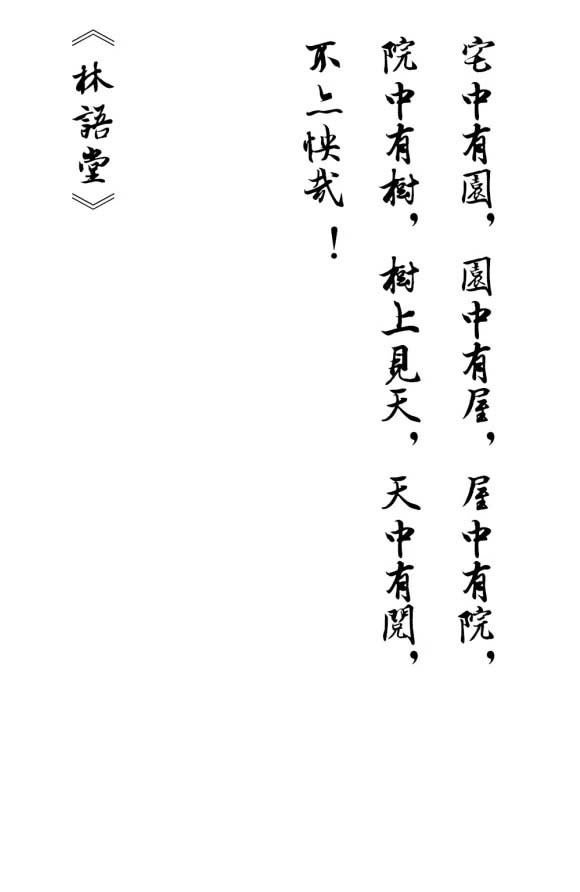 宅中有園，園中有屋，屋中有院，
院中有樹，樹上見天，天中有閱，
不亦快哉！
《林語堂》